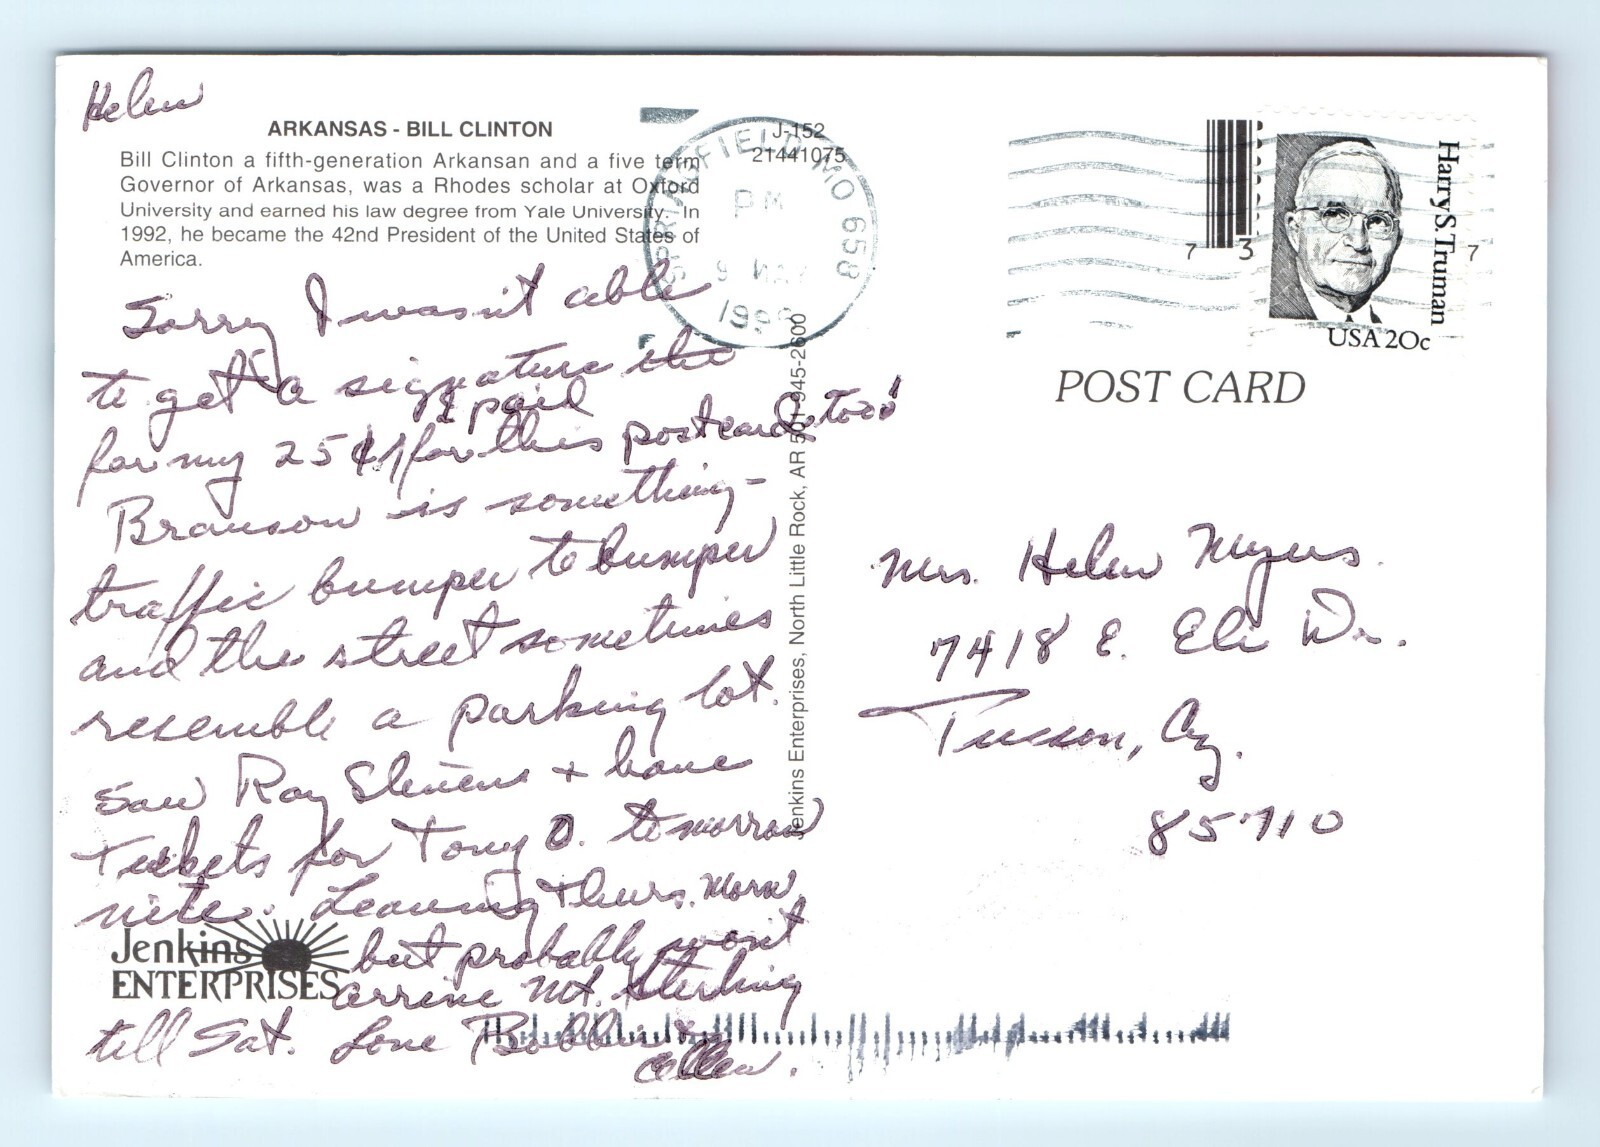 Helen
ARKANSAS - BILL CLINTON
Bill Clinton a fifth-generation Arkansan and a five term
Governor of Arkansas, was a Rhodes scholar at Oxford
University and earned his law degree from Yale University. In
1992, he became the 42nd President of the United States of
America.
J-152
21441075
SPRINGFIELD MO 658
PM
9
Sorry I wasn't able
to get a signature the
I paid
for my 25¢ for this postcard, too!
Branson is something -
traffic bumper to bumper
and the street sometimes
resemble a parking lot.
Saw Ray Stevens + have
tickets for Tony O. tomorrow
nite. Leaving Thurs. Morn
but probably won't
arrive Mt. Sterling
till Sat. Love Bobbie &
Jenkins
ENTERPRISES
Jenkins Enterprises, North Little Rock, AR 501-945-2600
7 3 7
Harry S. Truman
USA 20c
POST CARD
Mrs. Helen Myers
7418 E. Eli Dr.
Tucson, Az.
85710